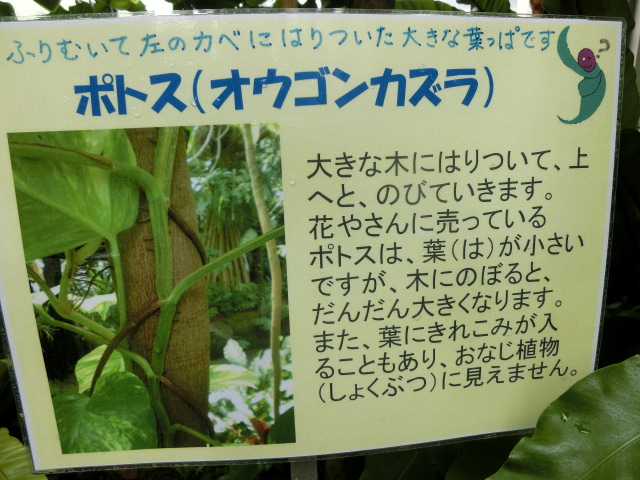 ふりむいて左のカベにはりついた大きな葉っぱです
ポトス(オウゴンカズラ)
大きな木にはりついて、上
へと、のびていきます。
花やさんに売っている
ポトスは、葉(は)が小さい
ですが、木にのぼると、
だんだん大きくなります。
また、葉にきれこみが入
ることもあり、おなじ植物
(しょくぶつ)に見えません。